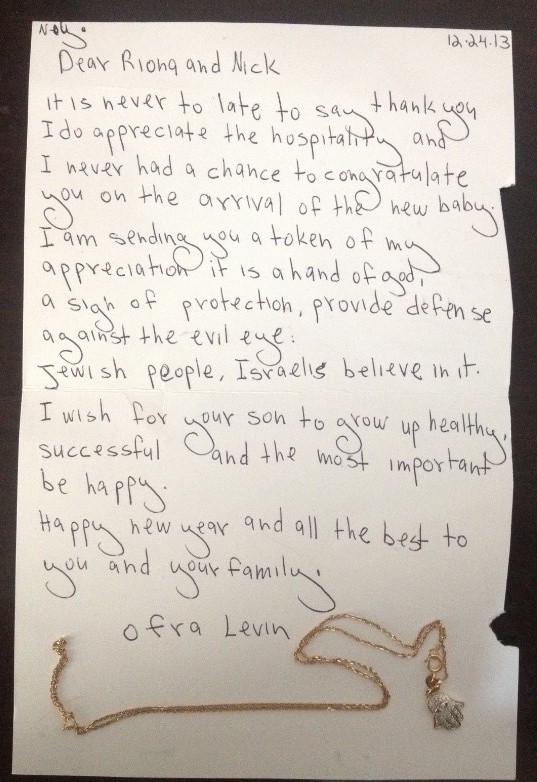 12.24.13
Dear Riona and Nick
it is never to late to say thank you
I do appreciate the hospitality and
I never had a chance to congratulate
you on the arrival of the new baby.
I am sending you a token of my
appreciation it is a hand of god,
a sign of protection, provide defense
against the evil eye.
Jewish people, Israelis believe in it.
I wish for your son to grow up healthy,
successful and the most important
be happy.
Happy new year and all the best to
you and your family.
ofra Levin